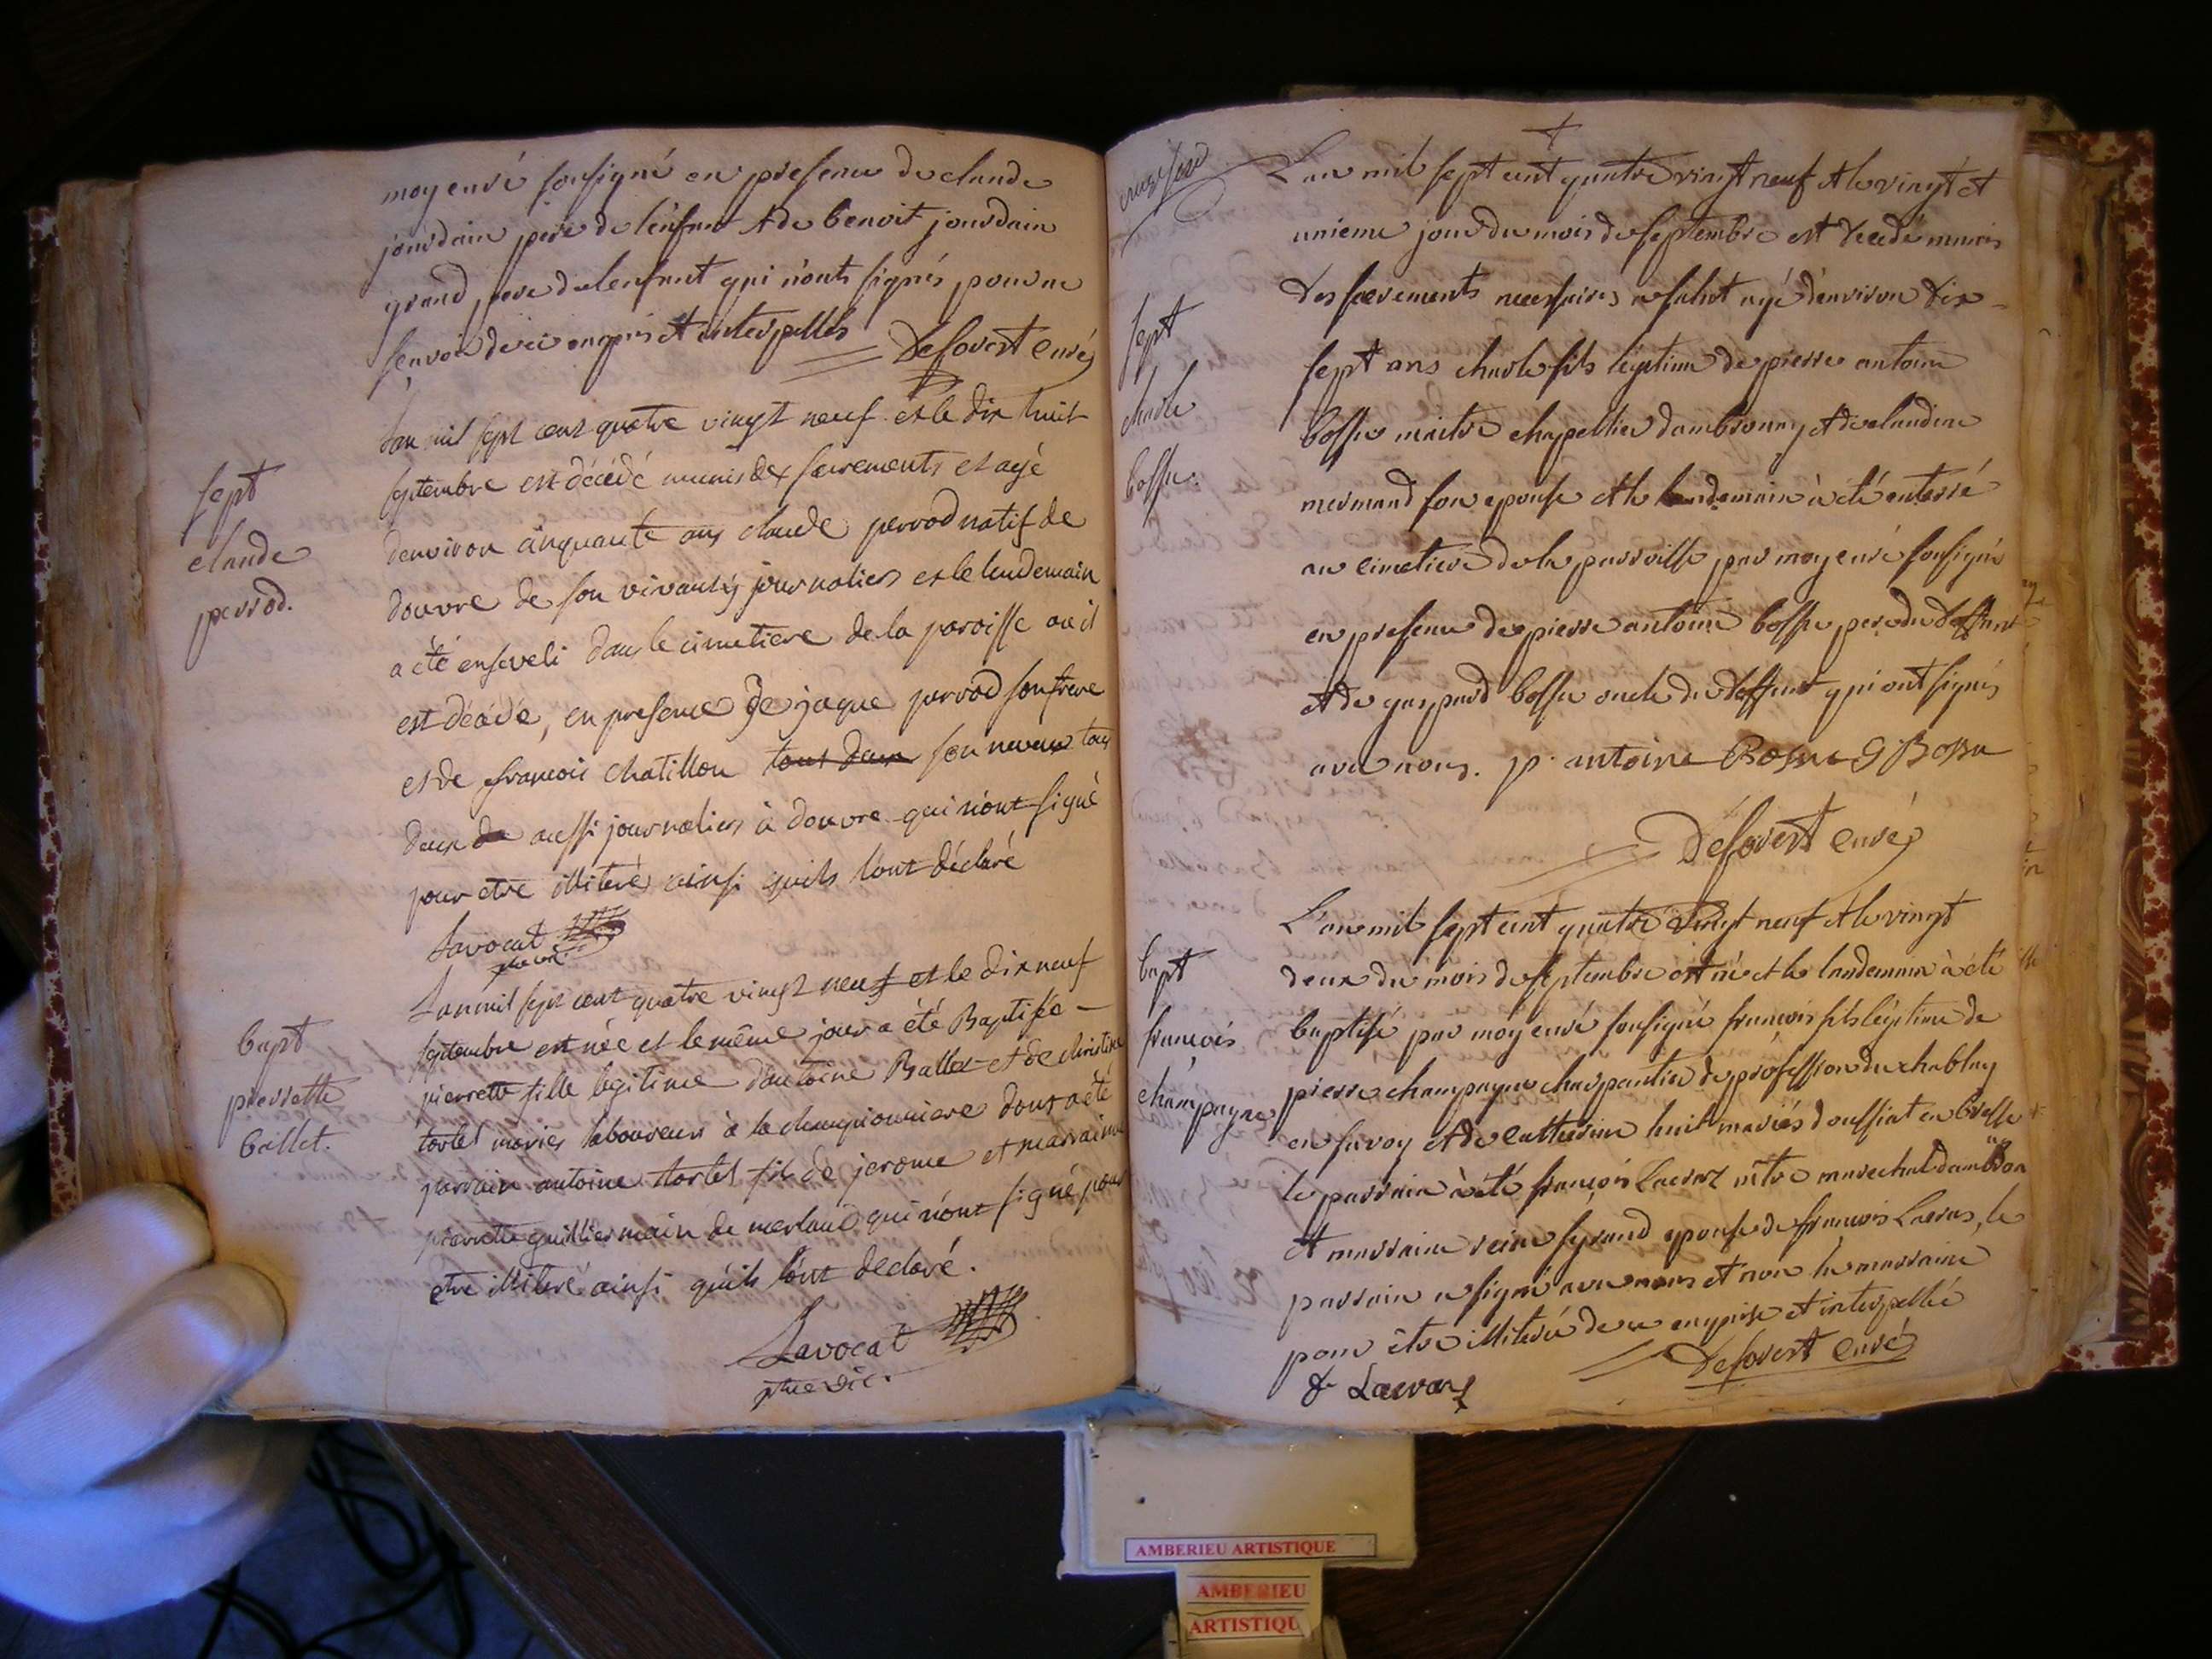 moy curé sousigné en presence de claude
jourdain pere de lenfant & de benoit jourdain
grand pere de lenfant qui n'onts signés pour ne
scavoir de ce enquis et interpellés Deforest curé
sept
claude
perrod.
L'an mil sept cent quatre vingt neuf et le dix huit
septembre est décédé munis des sacrements et agé
denviron cinquante ans claude perrod natif de
douvre de son vivant journalier et le lendemain
a été enseveli dans le cimetiere de la paroisse ou il
est décédé, en presence de jaque perrod son frere
et de francois chatillon tout deux son neveux tous
deux de aussi journaliers à douvre qui n'ont signé
pour etre illiterés ainsi quils l'ont déclaré
Lavocat
ptre vic.
bapt
pierrette
ballet.
L'an mil sept cent quatre vingt neuf et le dix neuf
septembre est née et le même jour a été Baptisée
pierrette fille legitime d'antoine Ballet et de christine
tortel mariés laboureurs à la championniere dont a été
parrain antoine tortel fils de jerome et marraine
pierrette guilliermain de merland qui n'ont signé pour
etre illiteré ainsi qu'ils l'ont declaré.
Lavocat
ptre vic.
sept
charle
bossu.
L'an mil sept cent quatre vingt neuf & le vingt et
unieme jour du mois de septembre est decedé munis
des sacrements necessaires agé d'environ dix
sept ans charle fils legitime de pierre antoine
bossu maitre chapellier d'ambronay & de claudine
mermand son epouse & le landemain à été enterré
au cimetiere de la parroisse par moy curé sousigné
en presence de pierre antoine bossu pere du deffunt
& de gaspard bossu oncle du deffunt qui ont signés
avec nous. p. antoine Bossu G Bossu
Deforest curé
bapt
francois
champagne
L'an mil sept cent quatre vingt neuf & le vingt
deux du mois de septembre est né et le landemain à été
baptisé par moy curé sousigné francois fils legitime de
pierre champagne charpantier de profession du chablay
en savoy & de catherine huit mariés douffiat en bresse
le parrain à été françois Lacras mtre marechal dambron
et marraine reine seyrand epouse de francois Lacras, le
parrain a signé avec nous et non la marraine
pour être illiterée de ce enquise et interpellée
Deforest curé
f Lacras
AMBERIEU ARTISTIQUE
AMBERIEU
ARTISTIQU